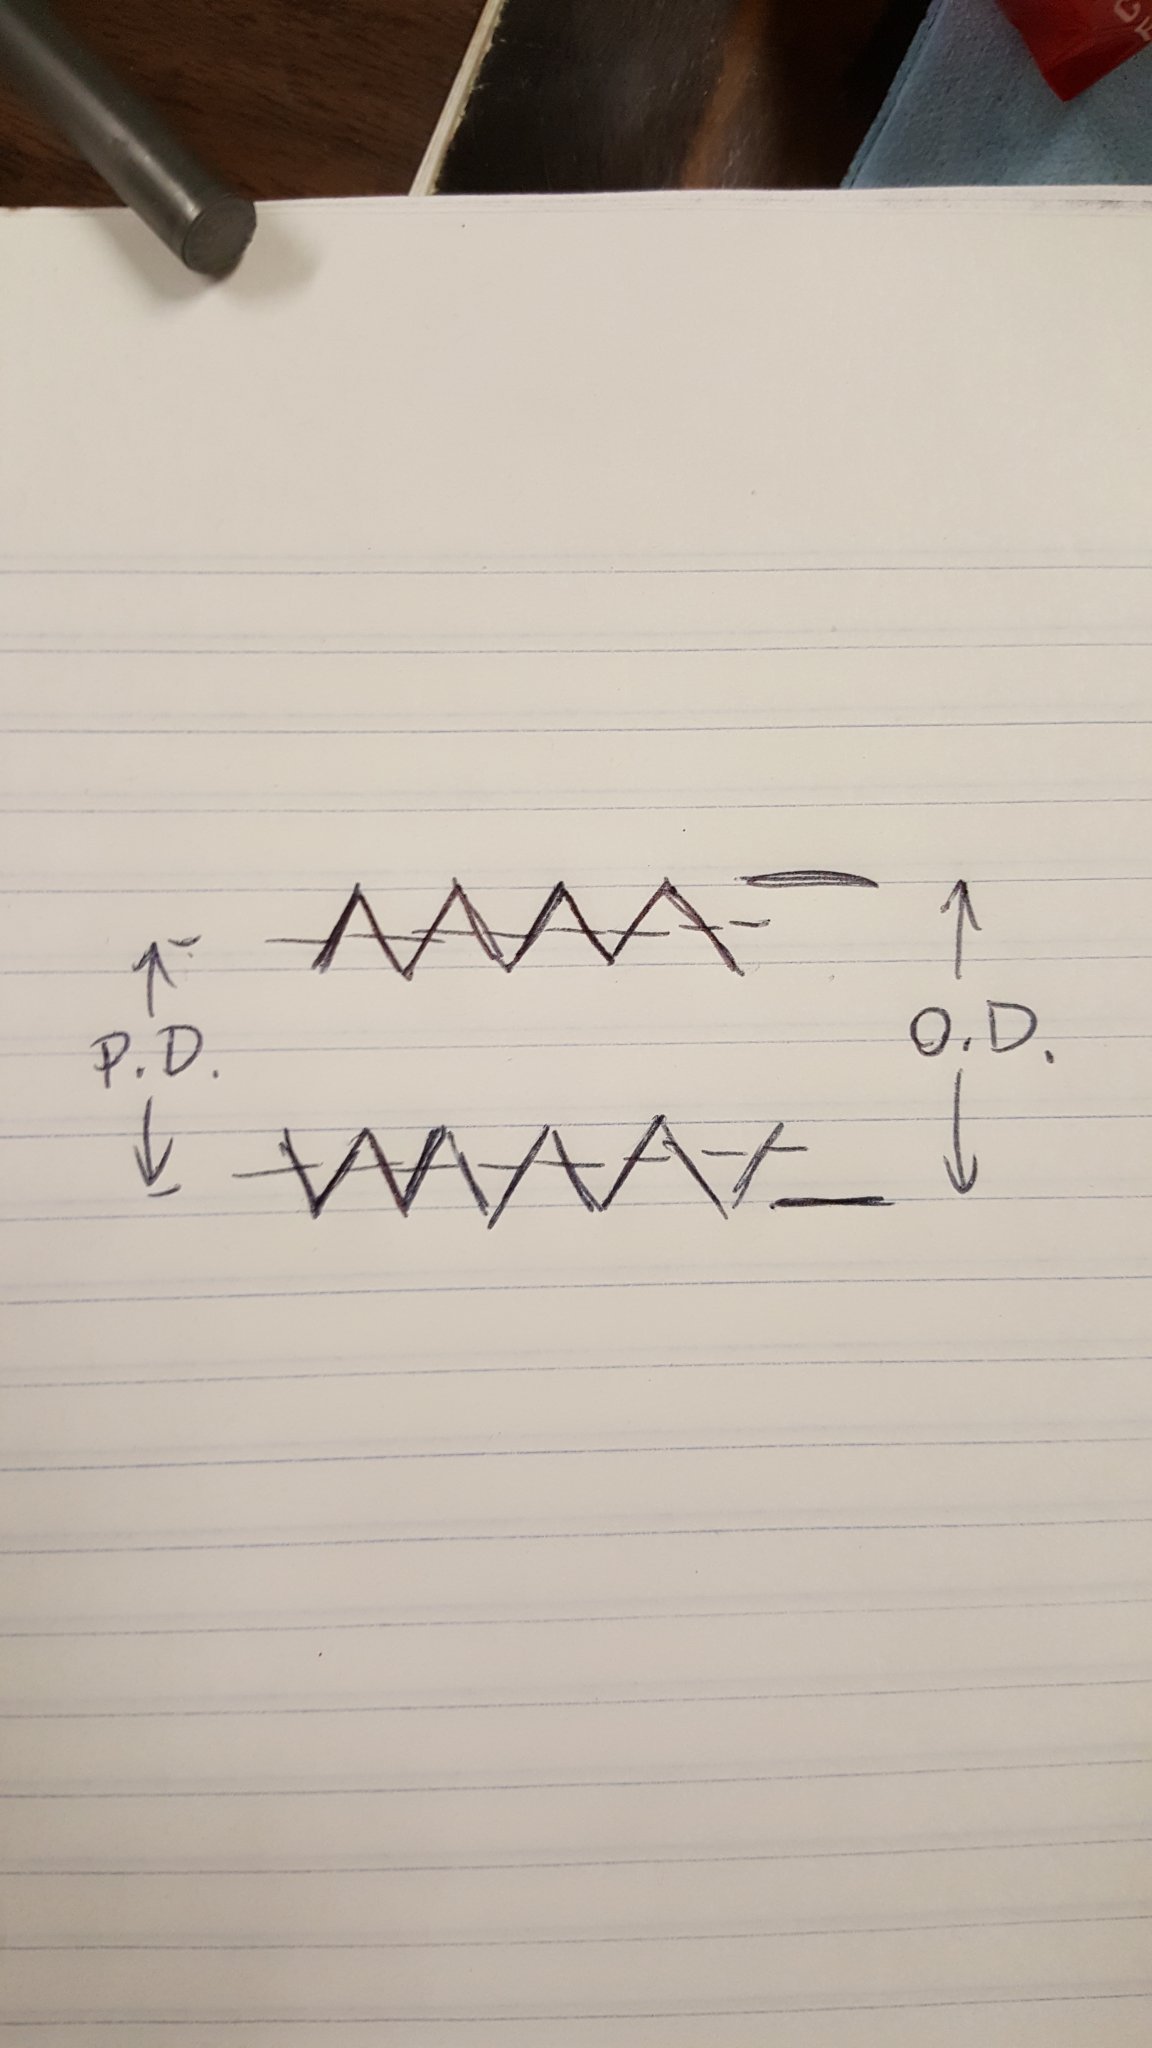 P.D.
O.D.